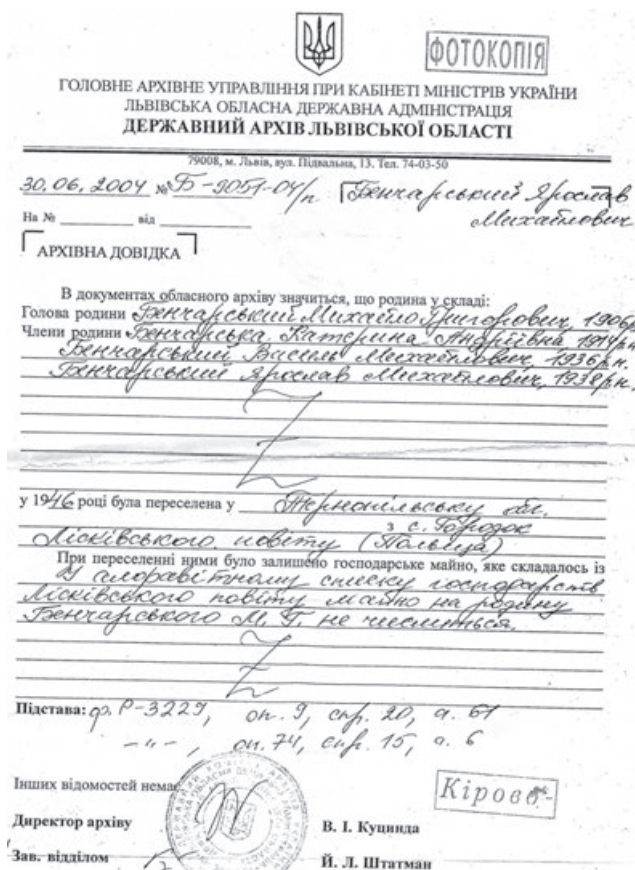 ФОТОКОПІЯ
ГОЛОВНЕ АРХІВНЕ УПРАВЛІННЯ ПРИ КАБІНЕТІ МІНІСТРІВ УКРАЇНИ
ЛЬВІВСЬКА ОБЛАСНА ДЕРЖАВНА АДМІНІСТРАЦІЯ
ДЕРЖАВНИЙ АРХІВ ЛЬВІВСЬКОЇ ОБЛАСТІ
79008, м. Львів, вул. Підвальна, 13. Тел. 74-03-50
30.06.2004 № Б-9051-04/п Бенчарський Ярослав
Михайлович
На № від
АРХІВНА ДОВІДКА
В документах обласного архіву значиться, що родина у складі:
Голова родини Бенчарський Михайло Григорович, 1906р
Члени родини Бенчарська Катерина Андріївна 1914р.н.
Бенчарський Василь Михайлович, 1936р.н.
Бенчарський Ярослав Михайлович, 1938р.н.
у 1946 році була переселена у Тернопільську обл.
з с. Городок
Лісківського повіту (Польща)
При переселенні ними було залишено господарське майно, яке складалось із
У алфавітному списку господарств
Лісківського повіту майно на родину
Бенчарського М. Г. не числиться.
Підстава: ф. Р-3229, оп. 9, спр. 20, а. 61
-"-, оп. 74, спр. 15, а. 6
Інших відомостей немає
Кірово-
Директор архіву В. І. Куцинда
Зав. відділом Й. Л. Штатман